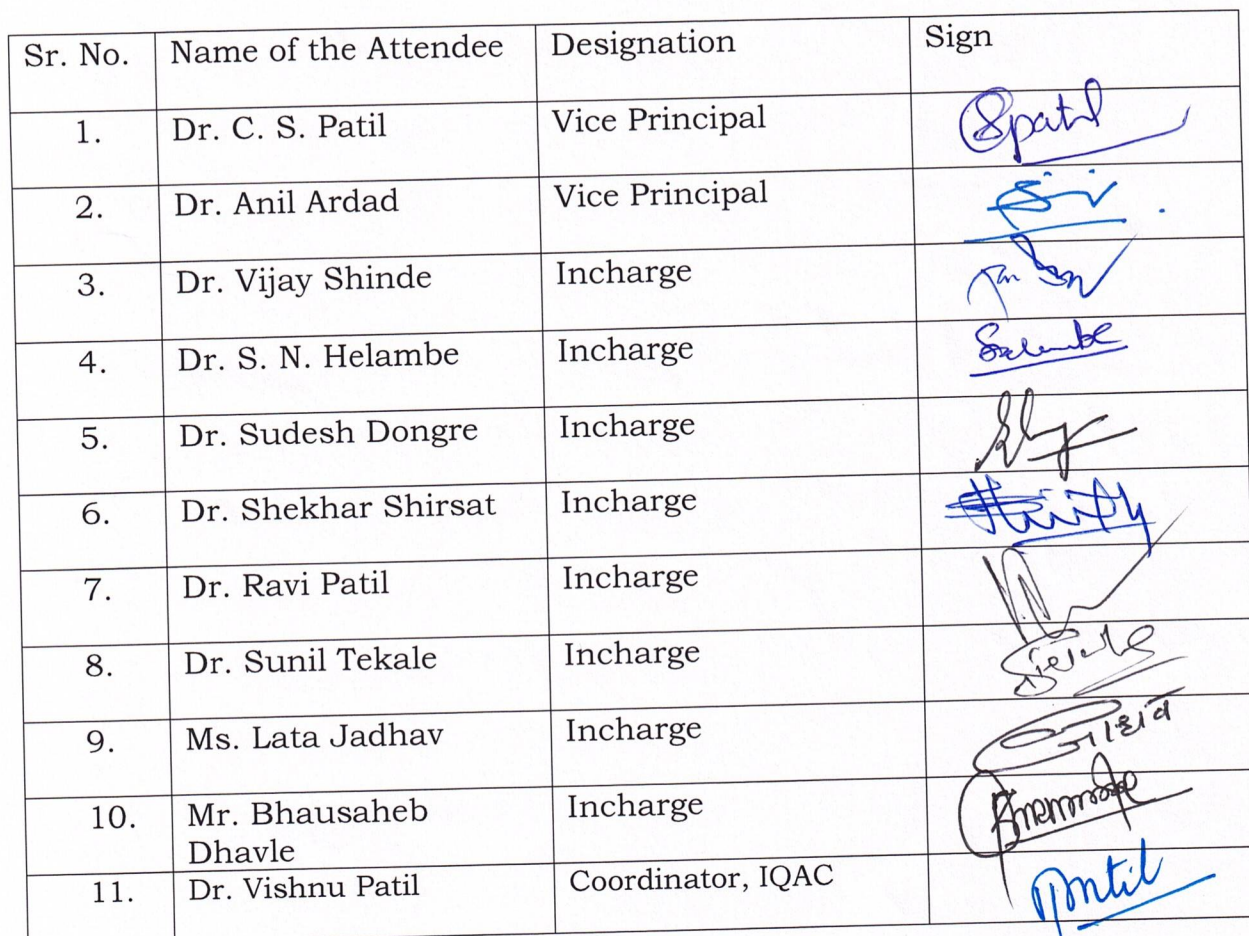 Sr. No. Name of the Attendee Designation Sign
1. Dr. C. S. Patil Vice Principal Spatil
2. Dr. Anil Ardad Vice Principal
3. Dr. Vijay Shinde Incharge
4. Dr. S. N. Helambe Incharge
5. Dr. Sudesh Dongre Incharge
6. Dr. Shekhar Shirsat Incharge
7. Dr. Ravi Patil Incharge
8. Dr. Sunil Tekale Incharge
9. Ms. Lata Jadhav Incharge जाधव
10. Mr. Bhausaheb Incharge
Dhavle
11. Dr. Vishnu Patil Coordinator, IQAC